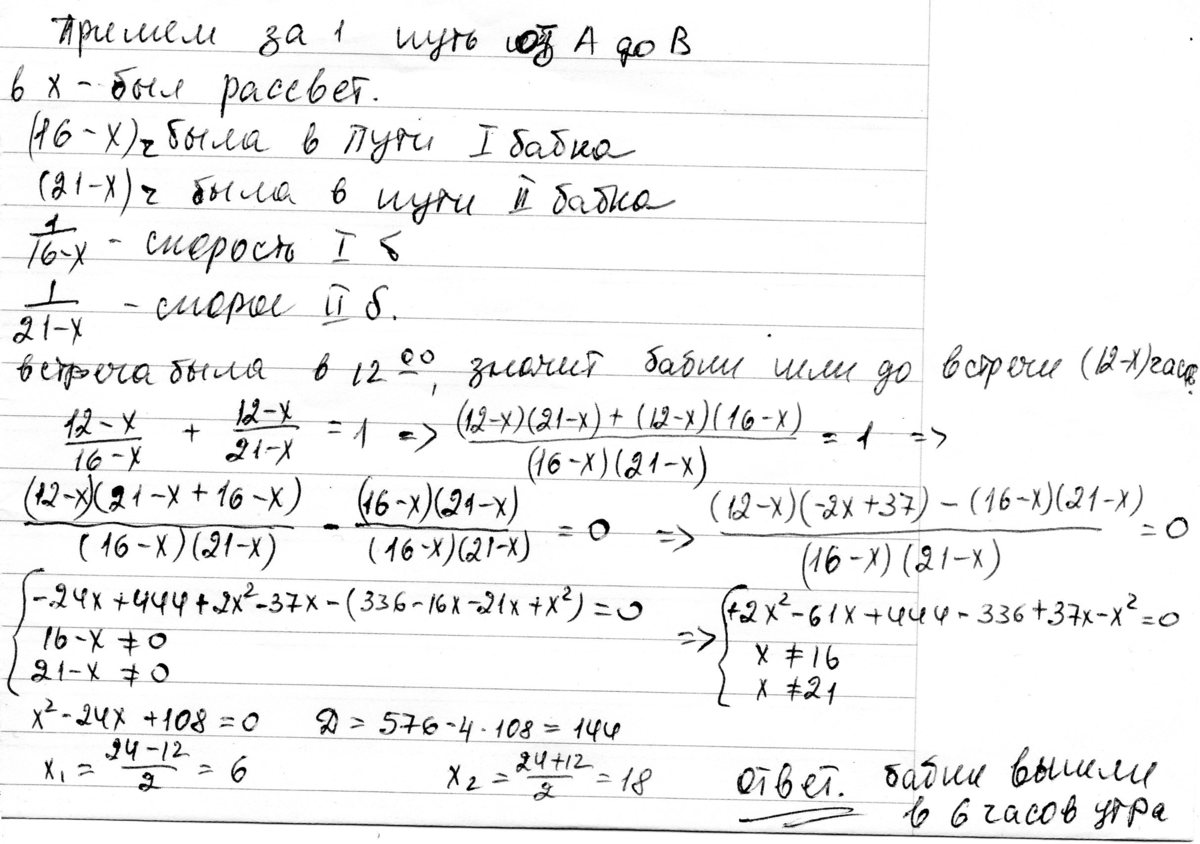 Примем за 1 путь от A до B
в x – был рассвет.
(16-x)ч была в пути I бабка
(21-x)ч была в пути II бабка
1/(16-x) - скорость I б
1/(21-x) - скорос II б.
встреча была в 12 00, значит бабки шли до встречи (12-x)часов
(12-x)/(16-x) + (12-x)/(21-x) = 1 => ((12-x)(21-x)+(12-x)(16-x))/((16-x)(21-x)) = 1 =>
((12-x)(21-x+16-x))/((16-x)(21-x)) - ((16-x)(21-x))/((16-x)(21-x)) = 0 => ((12-x)(-2x+37)-(16-x)(21-x))/((16-x)(21-x)) = 0
{ -24x+444+2x²-37x-(336-16x-21x+x²)=0 => { +2x²-61x+444-336+37x-x²=0
16-x ≠ 0 x ≠ 16
21-x ≠ 0 x ≠ 21
x²-24x+108=0 D = 576-4·108=144
x₁ = (24-12)/2 = 6 x₂ = (24+12)/2 = 18 ответ. бабки вышли
в 6 часов утра